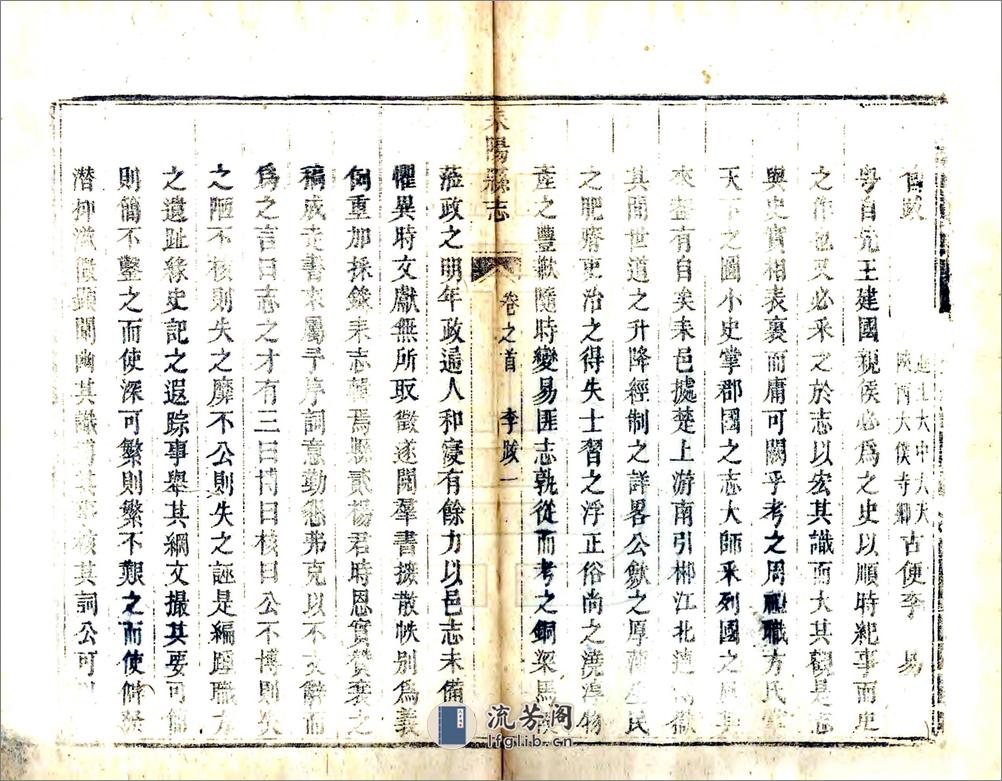 舊跋
大中大夫
陝西太僕寺卿古便李 易
粤自先王建國親侯必爲之史以順時紀事而史
之作也又必采之於志以宏其識而大其觀是志
與史實相表裏而庸可闕乎考之周禮職方氏掌
天下之圖小史掌郡國之志大師采列國之風其
來蓋有自矣耒邑據楚上游南引郴江北道 嶽
其間世道之升降經制之詳畧公歛之厚薄生民
之肥瘠吏治之得失士習之浮正俗尚之澆淳物
產之豐歉隨時變易匪志孰從而考之銅梁馬侯
蒞政之明年政通人和爰有餘力以邑志未備
懼異時文獻無所取徵遂閱羣書摭散帙别為義
例重加採錄耒志輯焉縣貳楊君時恩實贊襄之
稿成走書來屬予序詞意勤懇弗克以不文辭而
爲之言曰志之才有三曰博曰核曰公不博則失
之陋不核則失之靡不公則失之誣是編踵職方
之遺趾緣史記之遐踪事舉其綱文撮其要可簡
則簡不鑿之而使深可繁則繁不艱之而使僻發
潛抻滋微顯闡幽其識博其事核其詞公可
耒陽縣志
卷之首 李跋 一
流芳阁
lfglib.cn